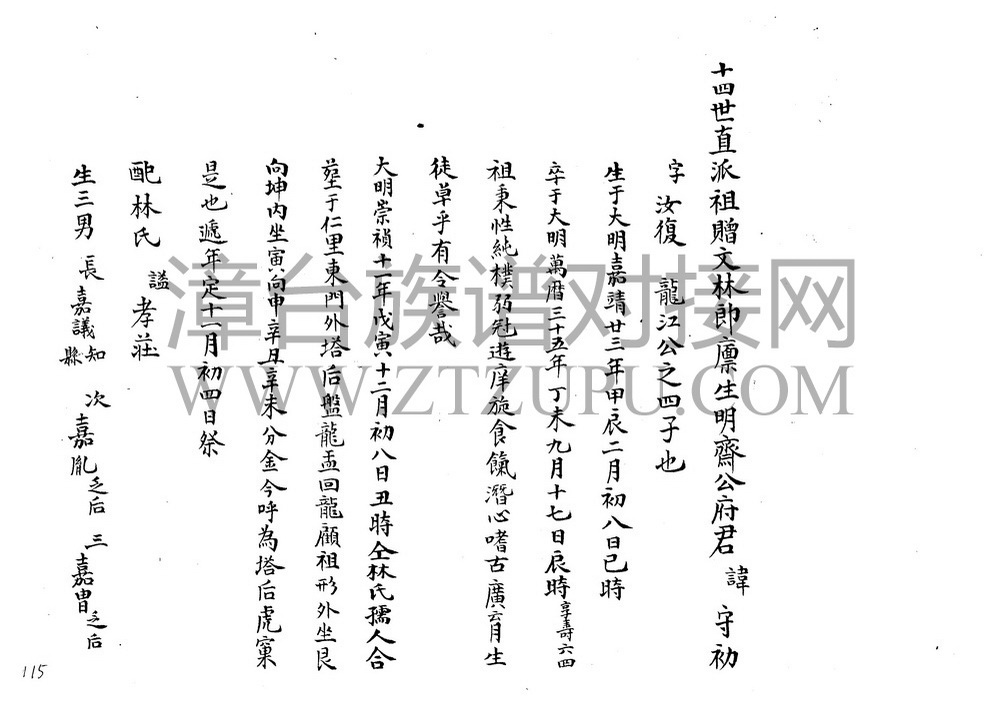 十四世直派祖贈文林郎廪生明齋公府君 諱 守初
字 汝復 龍江公之四子也
生于大明嘉靖廿三年甲辰二月初八日巳時
卒于大明萬曆三十五年丁未九月十七日辰時享壽六四
祖秉性純樸弱冠遊庠旋食餼潛心嗜古廣育生
徒卓乎有令譽哉
大明崇禎十一年戊寅十二月初八日丑時仝林氏孺人合
塟于仁里東門外塔后盤龍盂回龍顧祖形外坐艮
向坤内坐寅向申辛丑辛未分金今呼為塔后虎窠
是也遞年定十一月初四日祭
配林氏 謚 孝莊
生三男 長嘉議知縣 次嘉胤乏后 三嘉胄乏后
115
漳台族谱对接网
WWW.ZTZUPU.COM